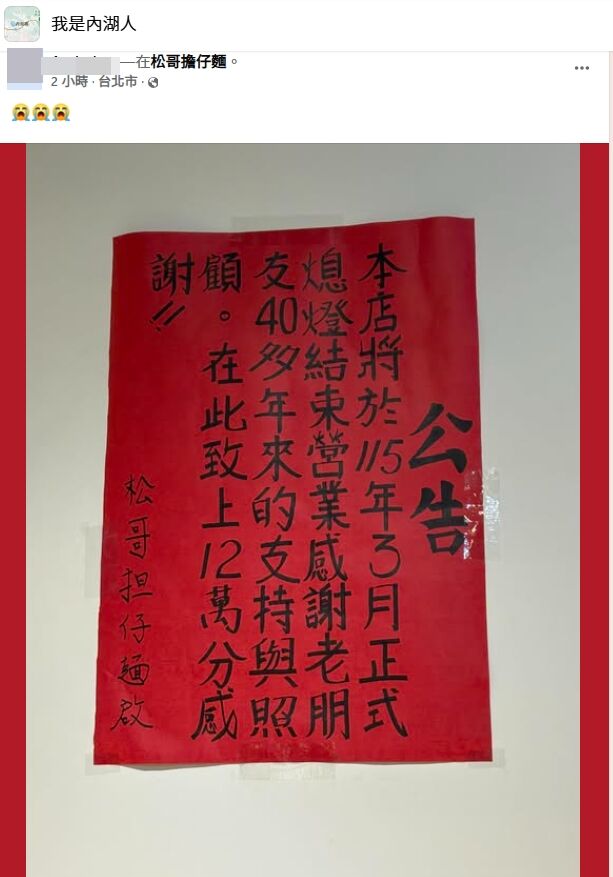 我是內湖人
—在松哥擔仔麵。
2 小時 · 台北市 ·
😭😭😭
公告
本店將於115年3月正式
熄燈結束營業感謝老朋
友40多年來的支持與照
顧。在此致上12萬分感
謝!!
松哥担仔麵啟